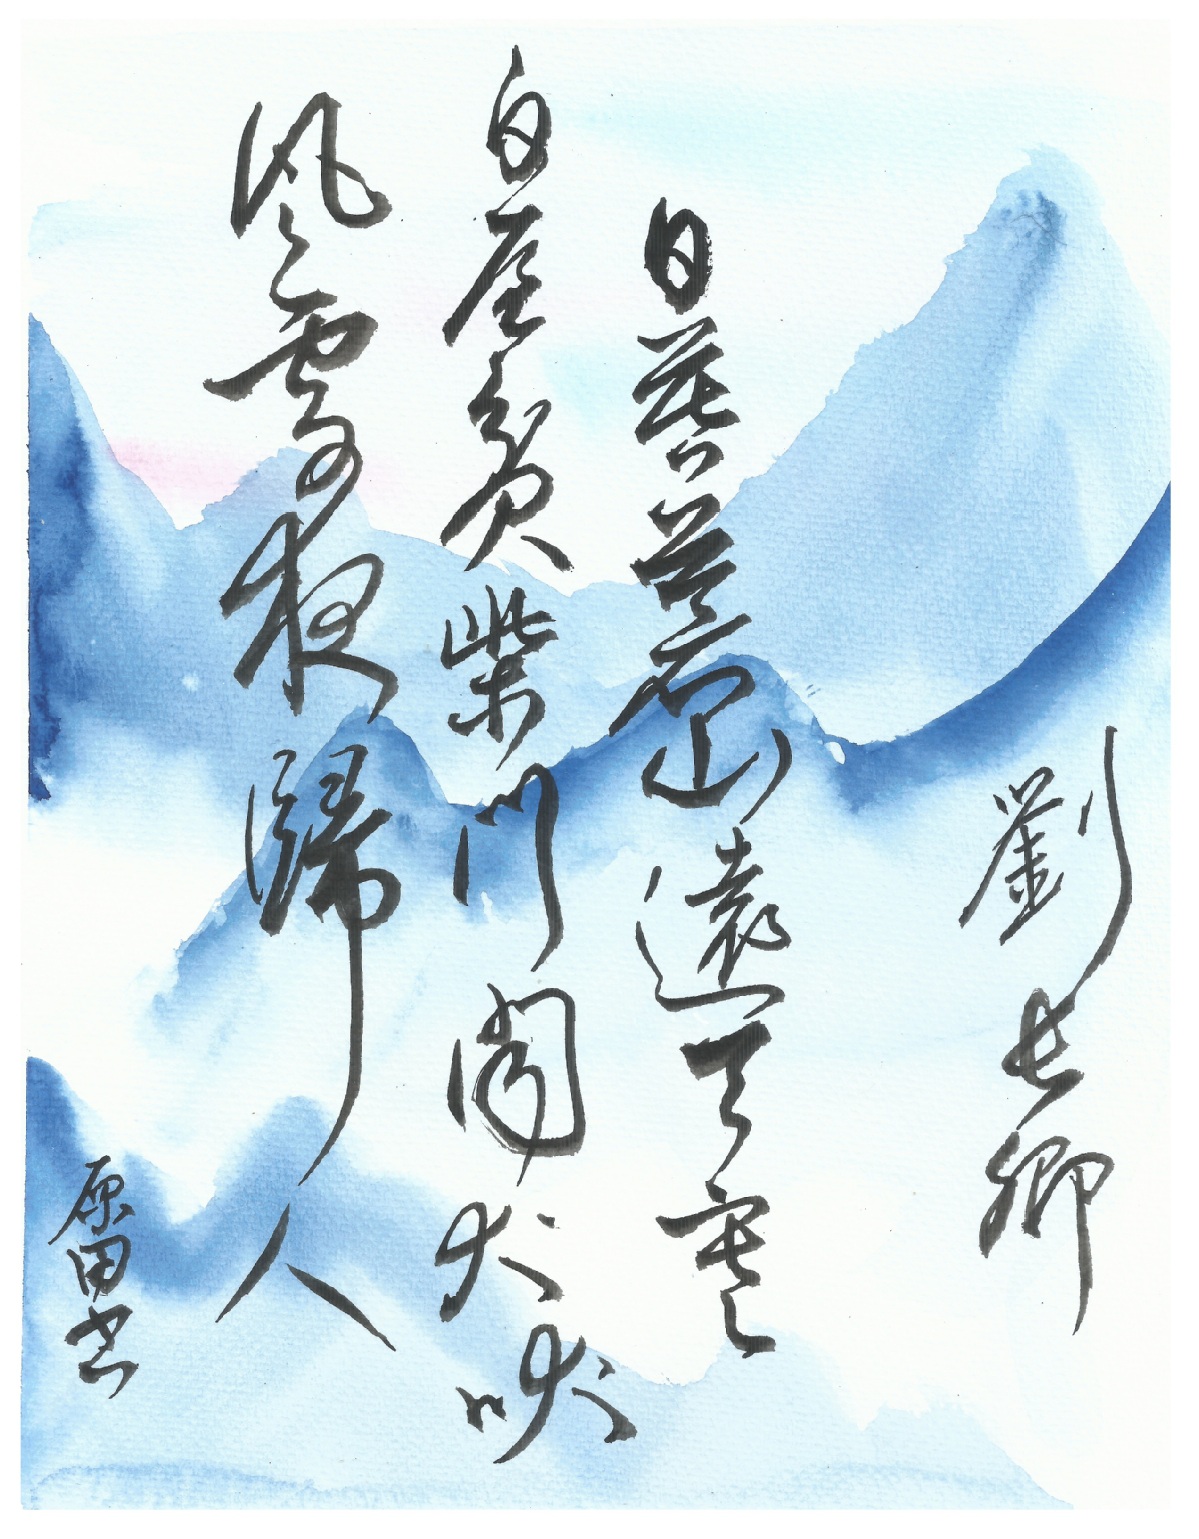 劉長卿
日暮蒼山遠天寒
白屋貧柴門聞犬吠
風雪夜歸人
原田書